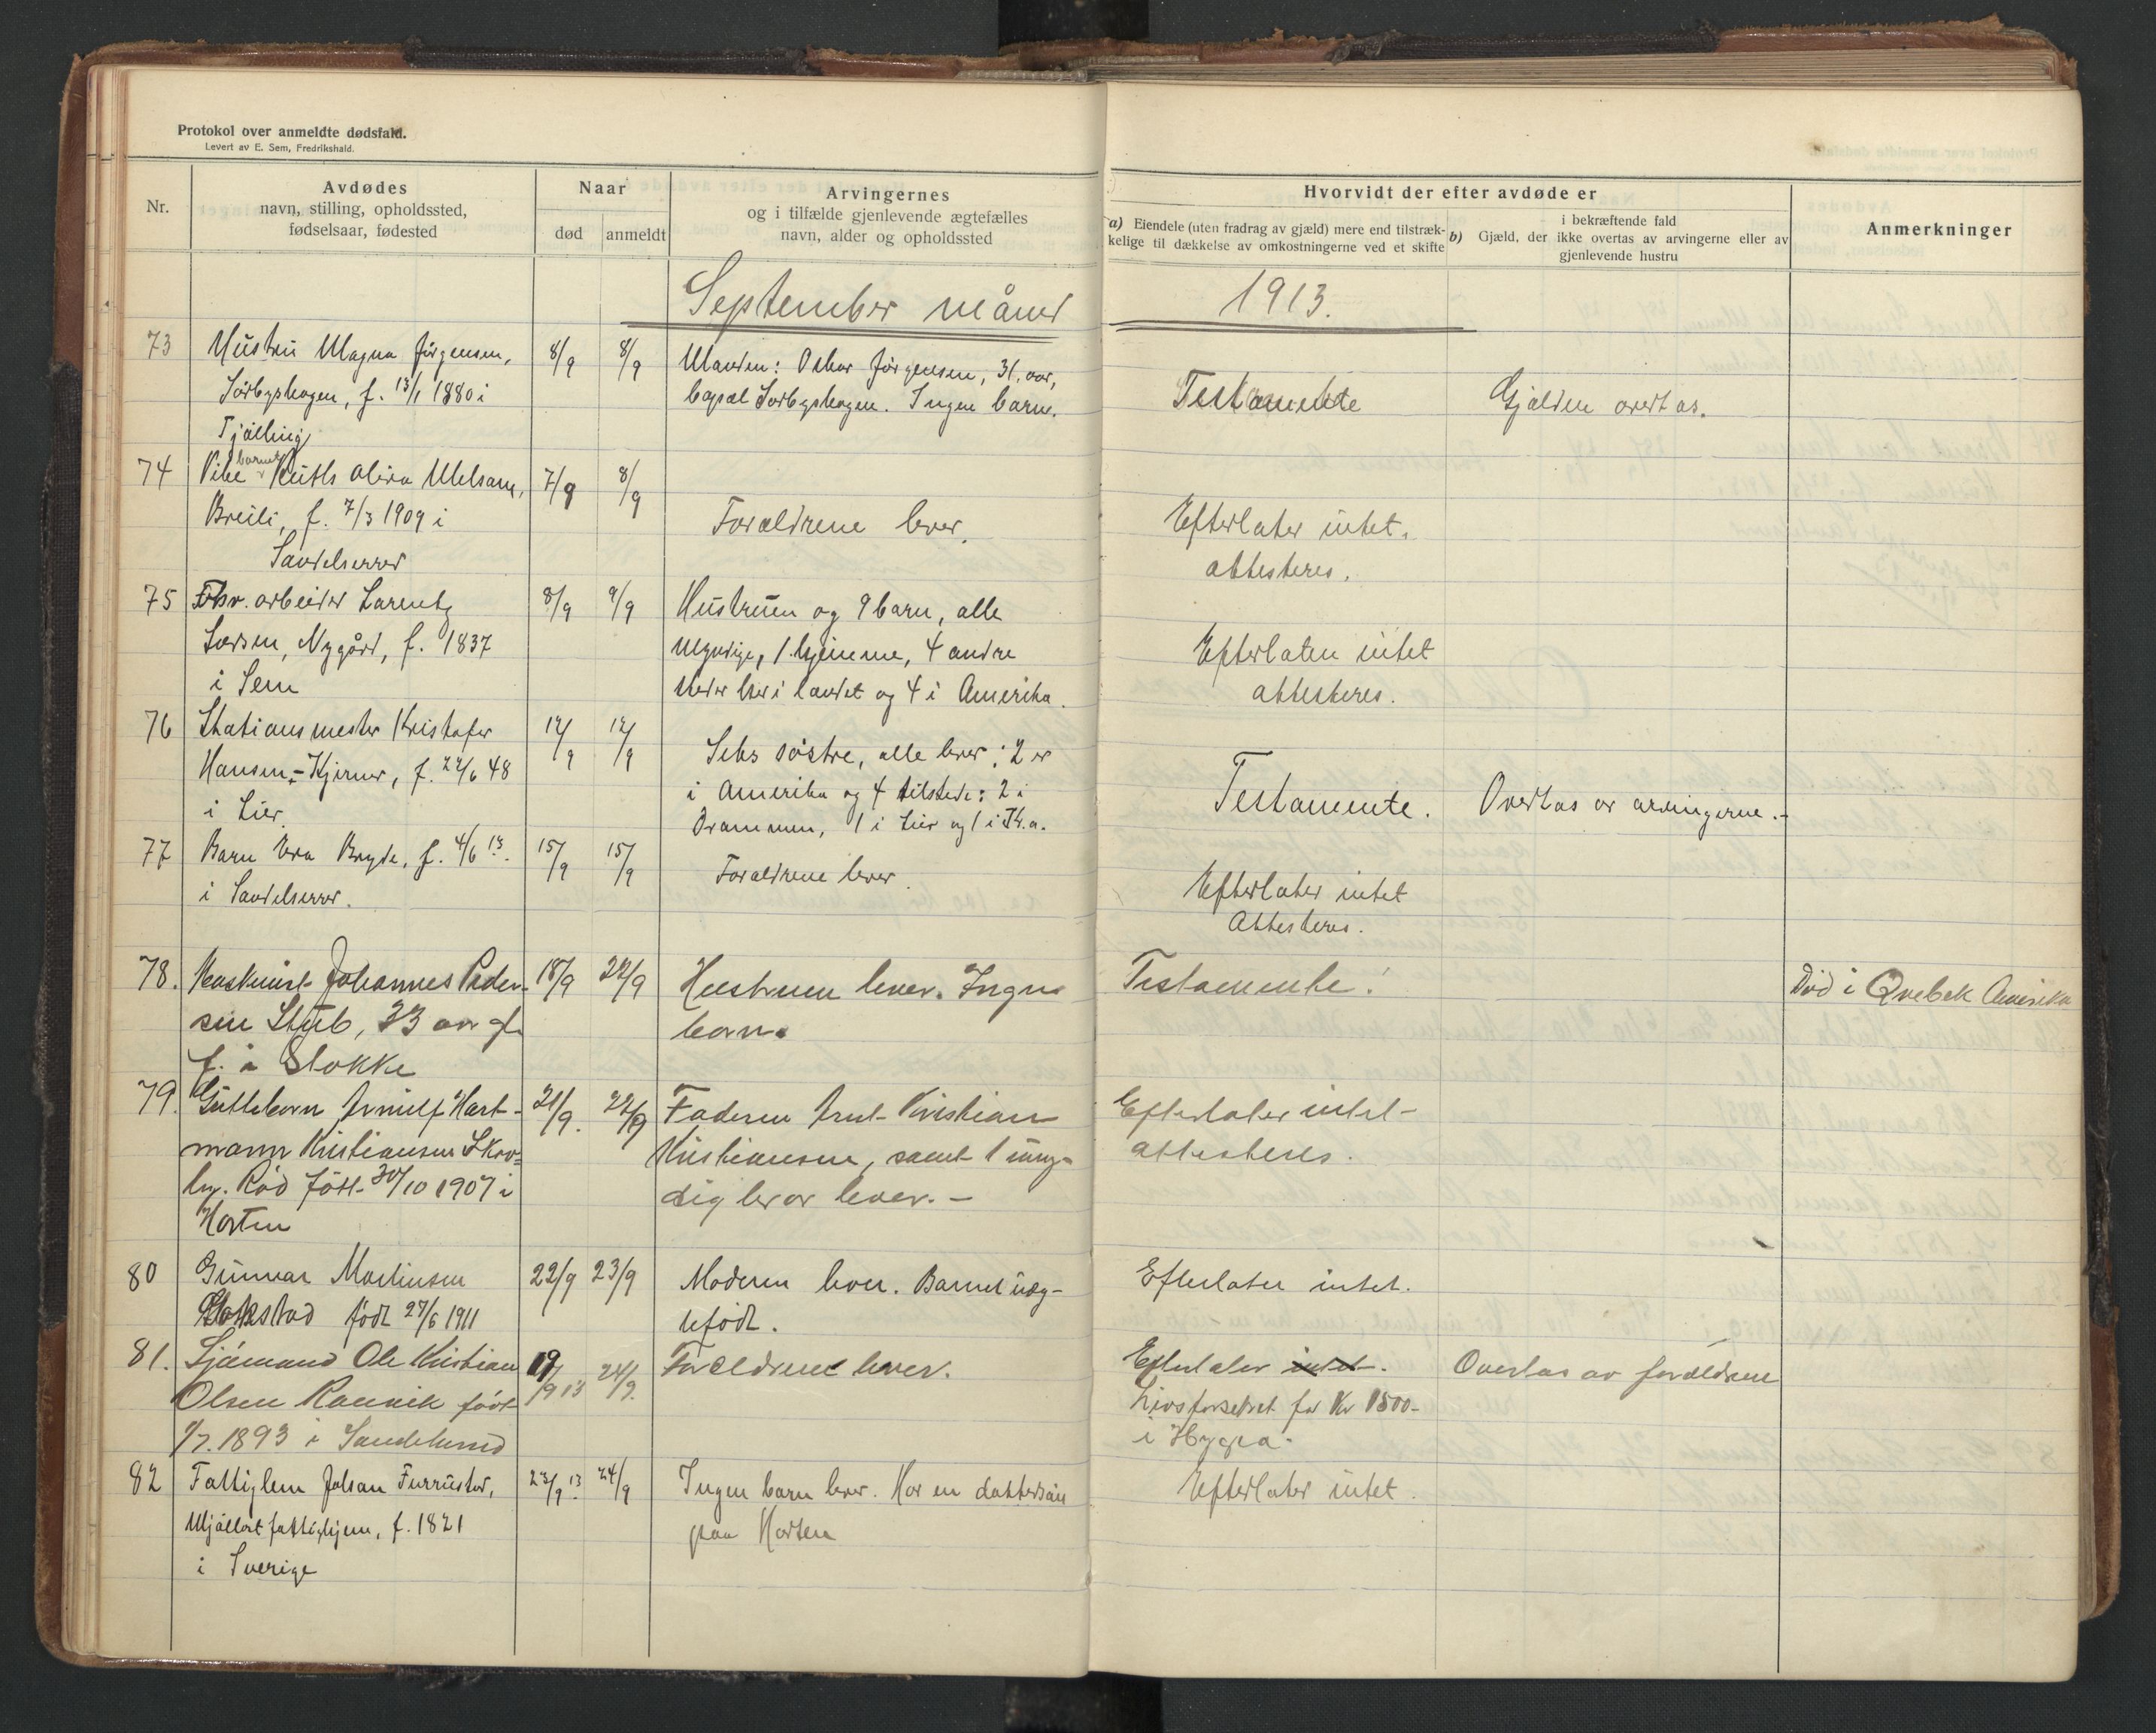 Protokol over anmeldte dødsfald.
Levert av E. Sem, Fredrikshald.
Nr.
Avdødes
navn, stilling, opholdssted,
fødselsaar, fødested
Naar
død
anmeldt
Arvingernes
og i tilfælde gjenlevende ægtefælles
navn, alder og opholdssted
Hvorvidt der efter avdøde er
a) Eiendele (uten fradrag av gjæld) mere end tilstræk-
kelige til dækkelse av omkostningerne ved et skifte
i bekræftende fald
b) Gjæld, der ikke overtas av arvingerne eller av
gjenlevende hustru
Anmerkninger
September måned 1913.
73
Hustru Magna Jørgensen,
Sörbyshagen, f. 13/1 1880 i
Tjölling
8/9
8/9
Manden: Oskar Jørgensen, 31, aar,
bopæl Sörbyshagen. Ingen barn.
Testamente
Gjælden overtas.
74
Pike barnet Ruth
Breili, f. 7/3 1909 i
Sandeherred
7/9
8/9
Forældrene lever.
Efterlater intet.
attesteres.
75
Fhv. arbeider Larentz
Larsen, Nygård, f. 1837
i Sem
8/9
9/9
Hustruen og 9 barn, alle
myndige, 1 hjemme, 4 andre
steder her i landet og 4 i Amerika.
Efterlater intet
attesteres.
76
Stationsmester Kristofer
Hansen-Kjerner, f. 22/6 48
i Lier.
12/9
12/9
Seks søstre, alle lever: 2 er
i Amerika og 4 tilstede: 2 i
Drammen, 1 i Lier og 1 i Kr.a.
Testamente.
Overtas av arvingerne.-
77
Barn Vera Bryde, f. 4/6 13.
i Sandeherred.
15/9
15/9
Forældrene lever.
Efterlater intet
Attesteres.
78.
Maskinist Johannes Peder-
sen Stub, 33 aar gl.
f. i Stokke
18/9
22/9
Hustruen lever. Ingen
barn.
Testamente!
Død i Qvebek Amerika
79.
Guttebarn Arnulf Hart-
mann Kristiansen Skov-
ly. Röd født 30/10 1907 i
Horten
21/9.
22/9
Faderen Arnt Kristian
Kristiansen, samt 1 umyn-
dig bror lever. -
Efterlater intet-
attesteres.
80
Gunnar Martinsen
Gokstad født 27/6 1911
22/9
23/9
Moderen lever. Barnet uæg-
tefödt.
Efterlater intet.
81.
Sjömand Ole Kristian
Olsen Ranvik født
1893 i Sandeherred
19/9 13
24/9.
Forældrene lever.
Efterlater intet.
Livsforsikret for Kr 1500-
i Hygea.
Overtas av forældrene
82
Fattiglem Johan Furustad,
Mjöllost fattighjem, f. 1821
i Sverige
23/9 13.
24/9
Ingen barn lever. Har en dattersön
paa Horten
Efterlater intet.